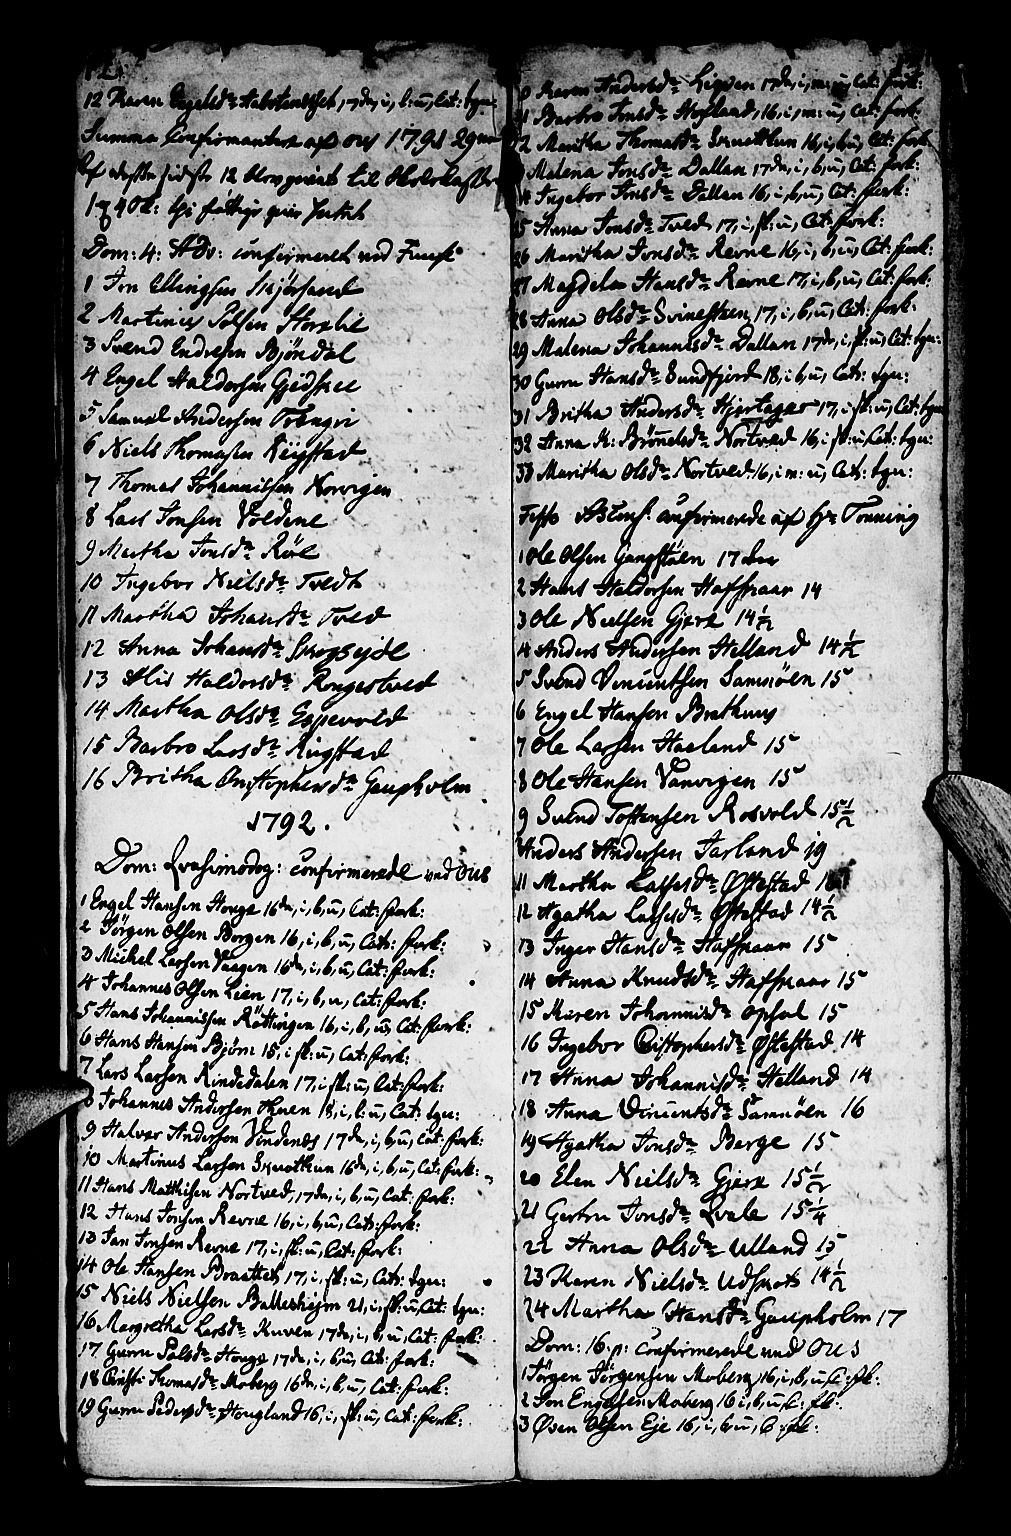 12 Karen Engelsd: Halstendset, 17 dn, i, b: u, Cat: tgn:
Summa Confirmanter af ous 1791 29
Af disse sidste 12 blev givet til
Dom: 4: Adv: confirmeret ved Fuuse
1 Jon Ellingsen Skjørsand
2 Martinus Polsen Horslie
3 Svend Endresen Bjöndal
4 Engel Haldorsen
5 Samuel Andersen Trængri
6 Niels Thomasen Rügstad
7 Thomas Johannissen Norvigen
8 Lars Jonsen Voldene
9 Martha Jonsd: Röe
10 Ingebor Nielsd: Tvedt
11 Martha Johansd: Tved
12 Anna Johansd: Skogseide
13 Alis Haldorsd: Rengestved
14 Martha Olsd: Espevold
15 Barbro Larsd: Rügstad
16 Britha Christophersd: Gaupholm
1792.
Dom: Qvasimodog: confirmerede ved Ous
1 Engel Hansen Houge 16 dn, i, b, u, Cat: fork:
2 Jörgen Olsen Borgen 16, i, b, u, Cat: fork:
3 Michel Larsen Vaagen 16 dn, i, b, u, Cat: fork:
4 Johannes Olsen Lien 17, i, b, u, Cat: fork:
5 Hans Johannissen Röttingen 16, i, b, u, Cat: fork:
6 Hans Hansen Bjørn 15, i fl: u, Cat: fork:
7 Lars Larsen Rindedalen 17, i fl: u, Cat: fork:
8 Johannes Andersen 18, i, b: u, Cat: tgn:
9 Halvor Andersen Vindenes 17 dn, i, b, u, Cat: fork:
10 Martinus Larsen Skuothun 16 dn, i, b, u, Cat: fork:
11 Hans Mathisen Nortved, 17 dn, i, b, u, Cat: fork:
12 Hans Jonsen Revne 16, i, b, u, Cat: fork:
13 Jan Jonsen Revne 17, i, fl: u, Cat: fork:
14 Ole Hansen Braattet 17, i, fl: u, Cat: tgn:
15 Niels Nielsen Balleshejm 21, i, fl: u, Cat: tgn:
16 Margretha Larsd: Kuven 17 dn, i, b, u, Cat: fork:
17 Guru Polsd: Houge 17 dn, i, b, u, Cat: fork:
18 Christi Thomasd: Moberg 16 dn, i, b, u, Cat: fork:
19 Guru Pedersd: Hougland 16, i, fl: u, Cat: fork:
Karen Andersd: Ligven 17 dn, i, m: u, Cat: fork:
21 Barbro Jonsd: Hogland, 16, i, m: u, Cat: fork:
22 Maritha Thomasd: Skuothun 16, i, b, u, Cat: fork
Malena Jonsd: Dallan 17 dn, i, b, u, Cat: fork:
24 Ingebor Jonsd: Dallan 16, i, b, u, Cat: fork:
25 Anna Jonsd: Tved 17, i, fl: u, Cat: fork:
26 Maritha Jonsd: Revne 16, i, b, u, Cat: fork:
27 Magdela Hansd: Revne 17, i, b, u, Cat: fork:
28 Anna Olsd: Svinestøen, 17, i, b, u, Cat: fork:
29 Malena Johannisd: Dallan 17 dn, i, fl: u, Cat: tgn:
30 Guru Hansd: Sundfjord 18, i, b, u, Cat: tgn:
31 Britha Andersd: Hjertager 17, i, fl: u, Cat: tgn
32 Anna K: Brönnelsd: Nortved 16, i fl: u Cat: tgn:
33 Maritha Olsd: Nortved 16, i m: u, Cat: tgn:
Festo Ascens. confirmerede af Hr Tonning
1 Ole Olsen Gangstöen 17 Aar
2 Hans Haldorsen Hafskaar 14
3 Ole Nielsen Gjere 14 1/2
4 Anders Andersen Helland 14 1/2
5 Svend Vincentsen Samnöen 15
6 Engel Hansen Brethuus
7 Ole Larsen Haeland 15
8 Ole Hansen Vanvigen 15
9 Svend Tostensen Rosvold 15 1/2
Anders Andersen Jarland 19
11 Martha Lassesd: Østestad 16
12 Agatha Lassesd: Østestad 14 1/2
13 Inger Hansd: Hafskaar 15
14 Anna Knudsd: Hafskaar 15
15 Maren Johannisd: Opsal 15
16 Ingebor Christophersd: Østestad 14
17 Anna Johannisd: Helland 14
18 Anna Vincentsd: Samnöen 16
19 Agatha Jonsd: Berge 15
20 Elen Nielsd: Gjere 15 1/2
21 Gertru Jonsd: Qvale 15 1/4
22 Anna Olsd: Ulland 15
23 Karen Nielsd: Udskot 14 1/2
24 Martha Hansd: Gaupholm 17
Dom: 16. p: Confirmerede ved Ous
1 Jörgen Jörgensen Moberg 16, i, b, u, C: fk:
2 Jon Engelsen Moberg 16 i, b, u, C: fk:
3 Øven Olsen Eje 16, i, b, u, C: fk: